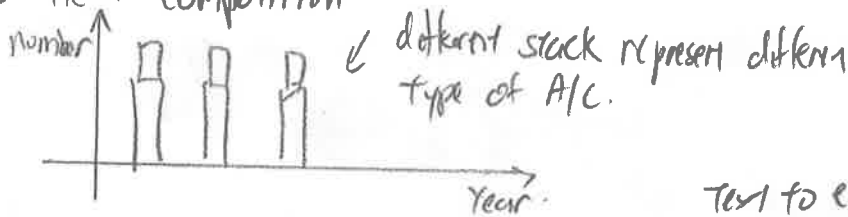 composition
number
different stack represent differen
type of A/C.
Year.
Text to e